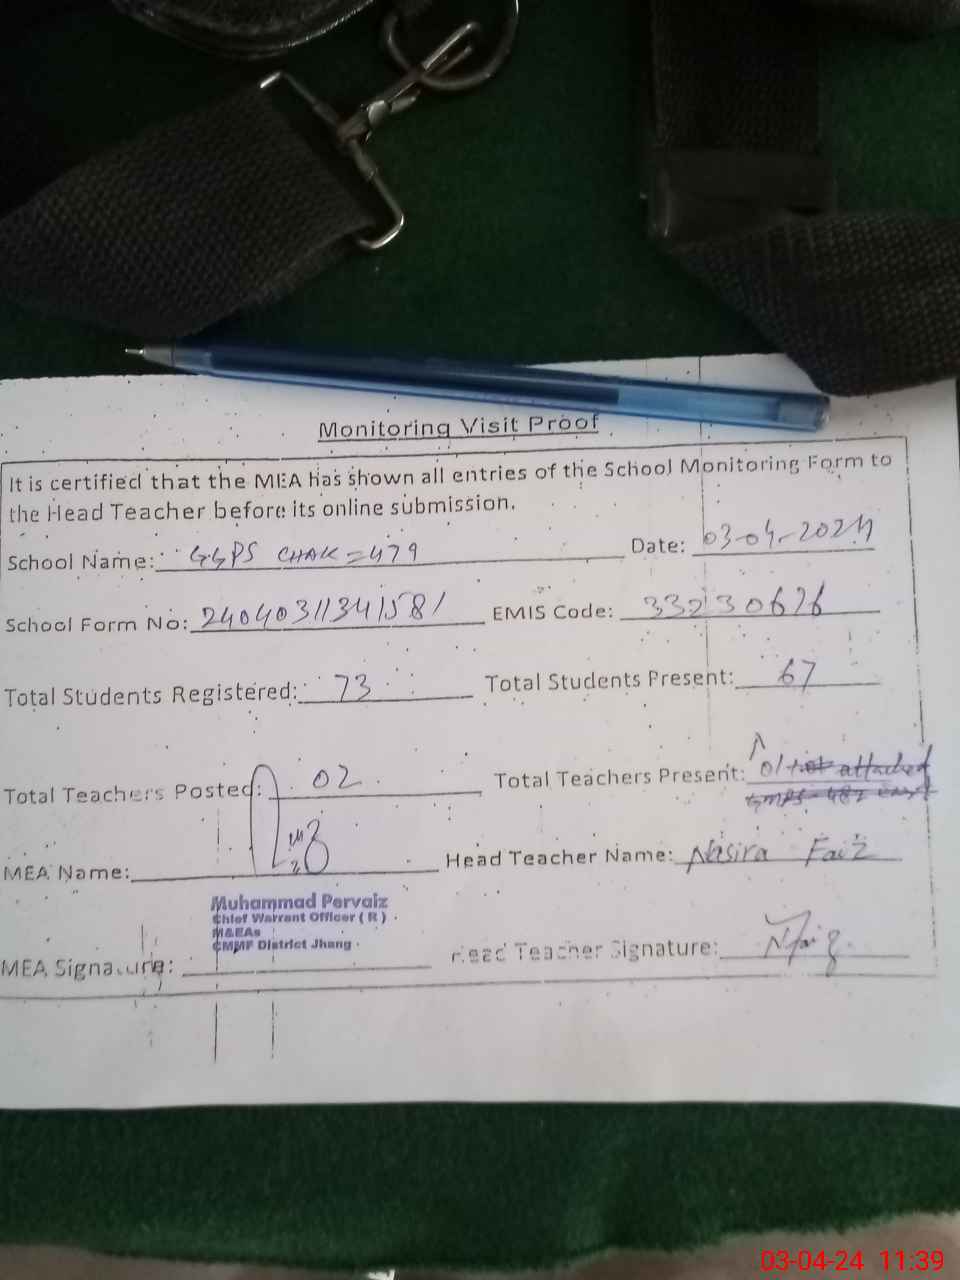 Monitoring Visit Proof
It is certified that the MEA has shown all entries of the School Monitoring Form to
the Head Teacher before its online submission.
School Name: GGPS CHAK = 479 Date: 03-04-2024
School Form No: 24040311341581 EMIS Code: 33230626
Total Students Registered: 73 Total Students Present: 67
Total Teachers Posted: 02 Total Teachers Present: 01 not attached
MEA Name: Head Teacher Name: Nasira Faiz
Muhammad Pervaiz
Chief Warrant Officer ( R )
M&EAs
CMMF District Jhang
MEA Signature: Head Teacher Signature: NFaiz
03-04-24 11:39